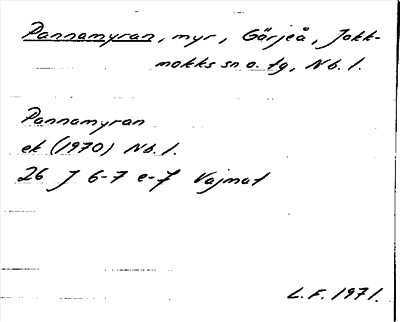 Pannamyran, myr, Görjeå, Jokk-
mokks sn o. tg, Nb. l.
Pannamyran
ek (1970) Nb. l.
26 J 6-7 e-f Vajmat
L. F. 1971.